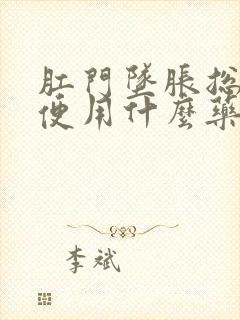 肛門墜脹總
便用什麼藥
李斌